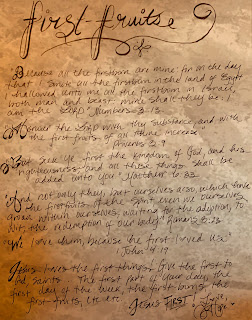 First-fruits
"Because all the firstborn are mine: for on the day
that I smote all the firstborn in the land of Egypt
I hallowed unto me all the firstborn in Israel,
both man and beast: mine shall they be:
I am the LORD" Numbers 3:13
"Honour the LORD with thy substance, and with
the firstfruits of all thine increase"
Proverbs 3:9
"But seek ye first the kingdom of God, and his
righteousness; and all these things shall be
added unto you" Matthew 6:33
"And not only they, but ourselves also, which have
the firstfruits of the Spirit, even we ourselves
groan within ourselves, waiting for the adoption, to
wit, the redemption of our body" Romans 8:23
"We love him, because he first loved us"
1 John 4:19
Jesus loves the first things. Give the first to
God, saints. The first part of your day, the
first day of the week, the first hours, the
first fruits, etc. etc.
Jesus FIRST!